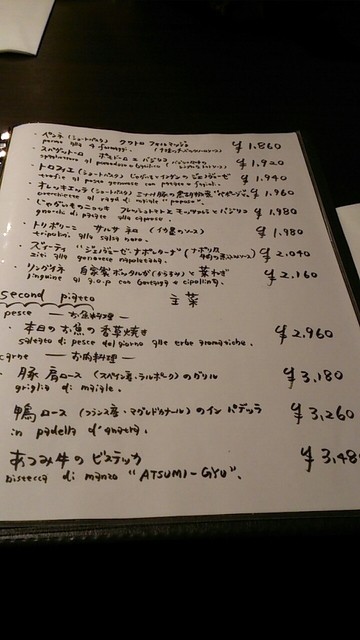 ・ペンネ(ショートパスタ) クワトロ フォルマッジョ ¥1,860
penne alla 4 formaggi.
・スパゲットーロ ポモドーロ バジリコ ¥1,920
al pomodoro
・トロフィエ(ショートパスタ) じゃがいもとインゲンの ジェノヴェーゼ ¥1,940
trofie al pesto genovese con patate e fagioli.
・オレッキエッテ(ショートパスタ) ¥1,960
orecchiette al ragù di maiale
・じゃがいものニョッキ フレッシュトマトとモッツァレラとバジリコ ¥1,980
gnocchi di patate alla
・トリポリーニ サルサ ネロ (イカ墨のソース) ¥1,980
tripolini alla salsa nero.
・ズィーティ "ジェノヴェーゼ・ナポレターナ" ¥2,040
ziti alla genovese napoletana.
・リングイネ 自家製ボッタルガ(からすみ)と葉ねぎ ¥2,160
linguine al g.o.p con bottarga e cipollina.
second piatto 主菜
pesce ― お魚料理 ―
・本日のお魚の香草焼き ¥2,960
saltato di pesce del giorno alle erbe aromatiche.
carne ― お肉料理 ―
・豚肩ロース(スペイン産・ラルポーク)のグリル ¥3,180
griglia di maiale.
・鴨ロース(フランス産・マグレドカナール)のインパデッラ ¥3,260
in padella d'anatra.
あつみ牛のビステッカ ¥3,48
bistecca di manzo "ATSUMI-GYU".